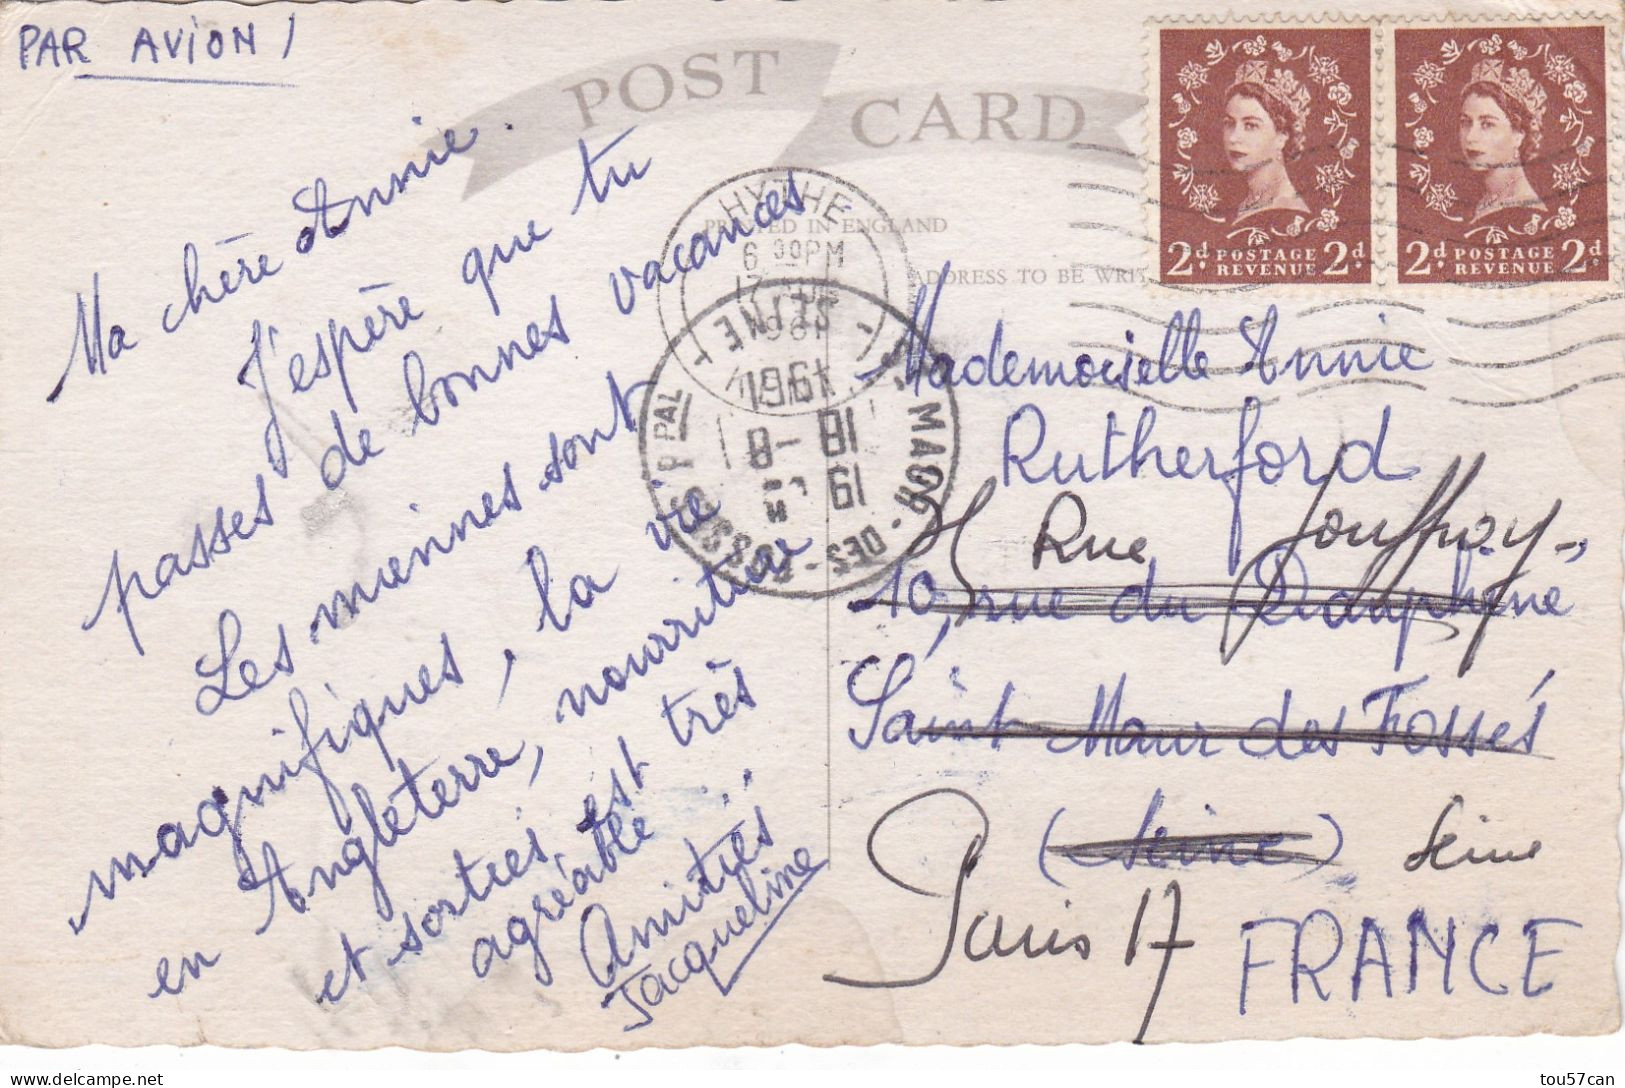 PAR AVION /
POST CARD
PRINTED IN ENGLAND
ADDRESS TO BE WRIT
2d POSTAGE REVENUE 2d.
2d POSTAGE REVENUE 2d.
HYTHE
6 00PM
17 AUG
1961
ST MAUR - DES - FOSSÉS PPAL
SEINE
19
18 -8
1961
Ma chère Annie.
J'espère que tu
passes de bonnes vacances
Les miennes sont
magnifiques, la vie
en Angleterre, nourriture
et sorties est très
agréable..
Amitiés
Jacqueline
Mademoiselle Annie
Rutherford
Rue Jouffroy-,
10, rue du Dauphiné
Saint Maur des Fossés
(Seine) Seine
Paris 17
FRANCE
tou57can